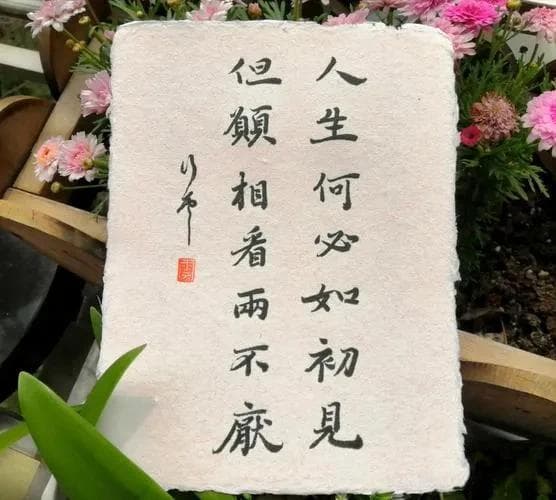 人生何必如初見
但願相看兩不厭